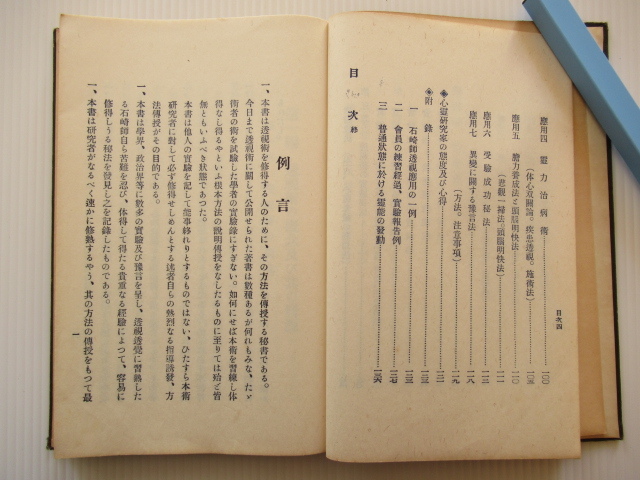 目次四
應用四　靈力治病術……一〇〇
（体心亙關論。疾患透視。施術法）……一〇五
應用五　膽力養成法と頭腦明快法……一一〇
（思觀一掃法。頭腦明快法）……一一一
應用六　受驗成功秘法……一一三
應用七　異變に關する豫言法……一一八
（方法。注意事項）……一一九
◈心靈研究家の態度及び心得……一二三
◈附　錄
一　石崎師透視應用の一例……一三三
二　會員の練習經過、實驗報告例……一三七
三　普通狀態に於ける靈能の發動……一五六
目　次　終
例　言
一、本書は透視術を修得する人のために、その方法を傳授する秘書である。
今日まで透視術に關して公開せられた著書は數種あるが何れもみな、たゞ
術者の術を試驗した學者の實驗錄にすぎない。如何にせば本術を習練し体
得なし得るやといふ根本方法の說明傳授をなしたるものに至りては殆ど皆
無ともいふべき狀態であつた。
本書は他人の實驗を記して能事終れりとするものではない、ひたすら本術
研究者に對して必ず修得せしめんとする述者自らの熱烈なる指導誘發、方
法傳授がその目的である。
一、本書は學界、政治界等に數多の實驗及び豫言を呈し、透視透覺に習熟した
る石崎師自ら苦難を忍び、体得して得たる貴重なる經驗によつて、容易に
修得しうる秘法を發見し之を記錄したものである。
一、本書は研究者がなるべく速かに修熟するやう、其の方法の傳授をもつて最
一